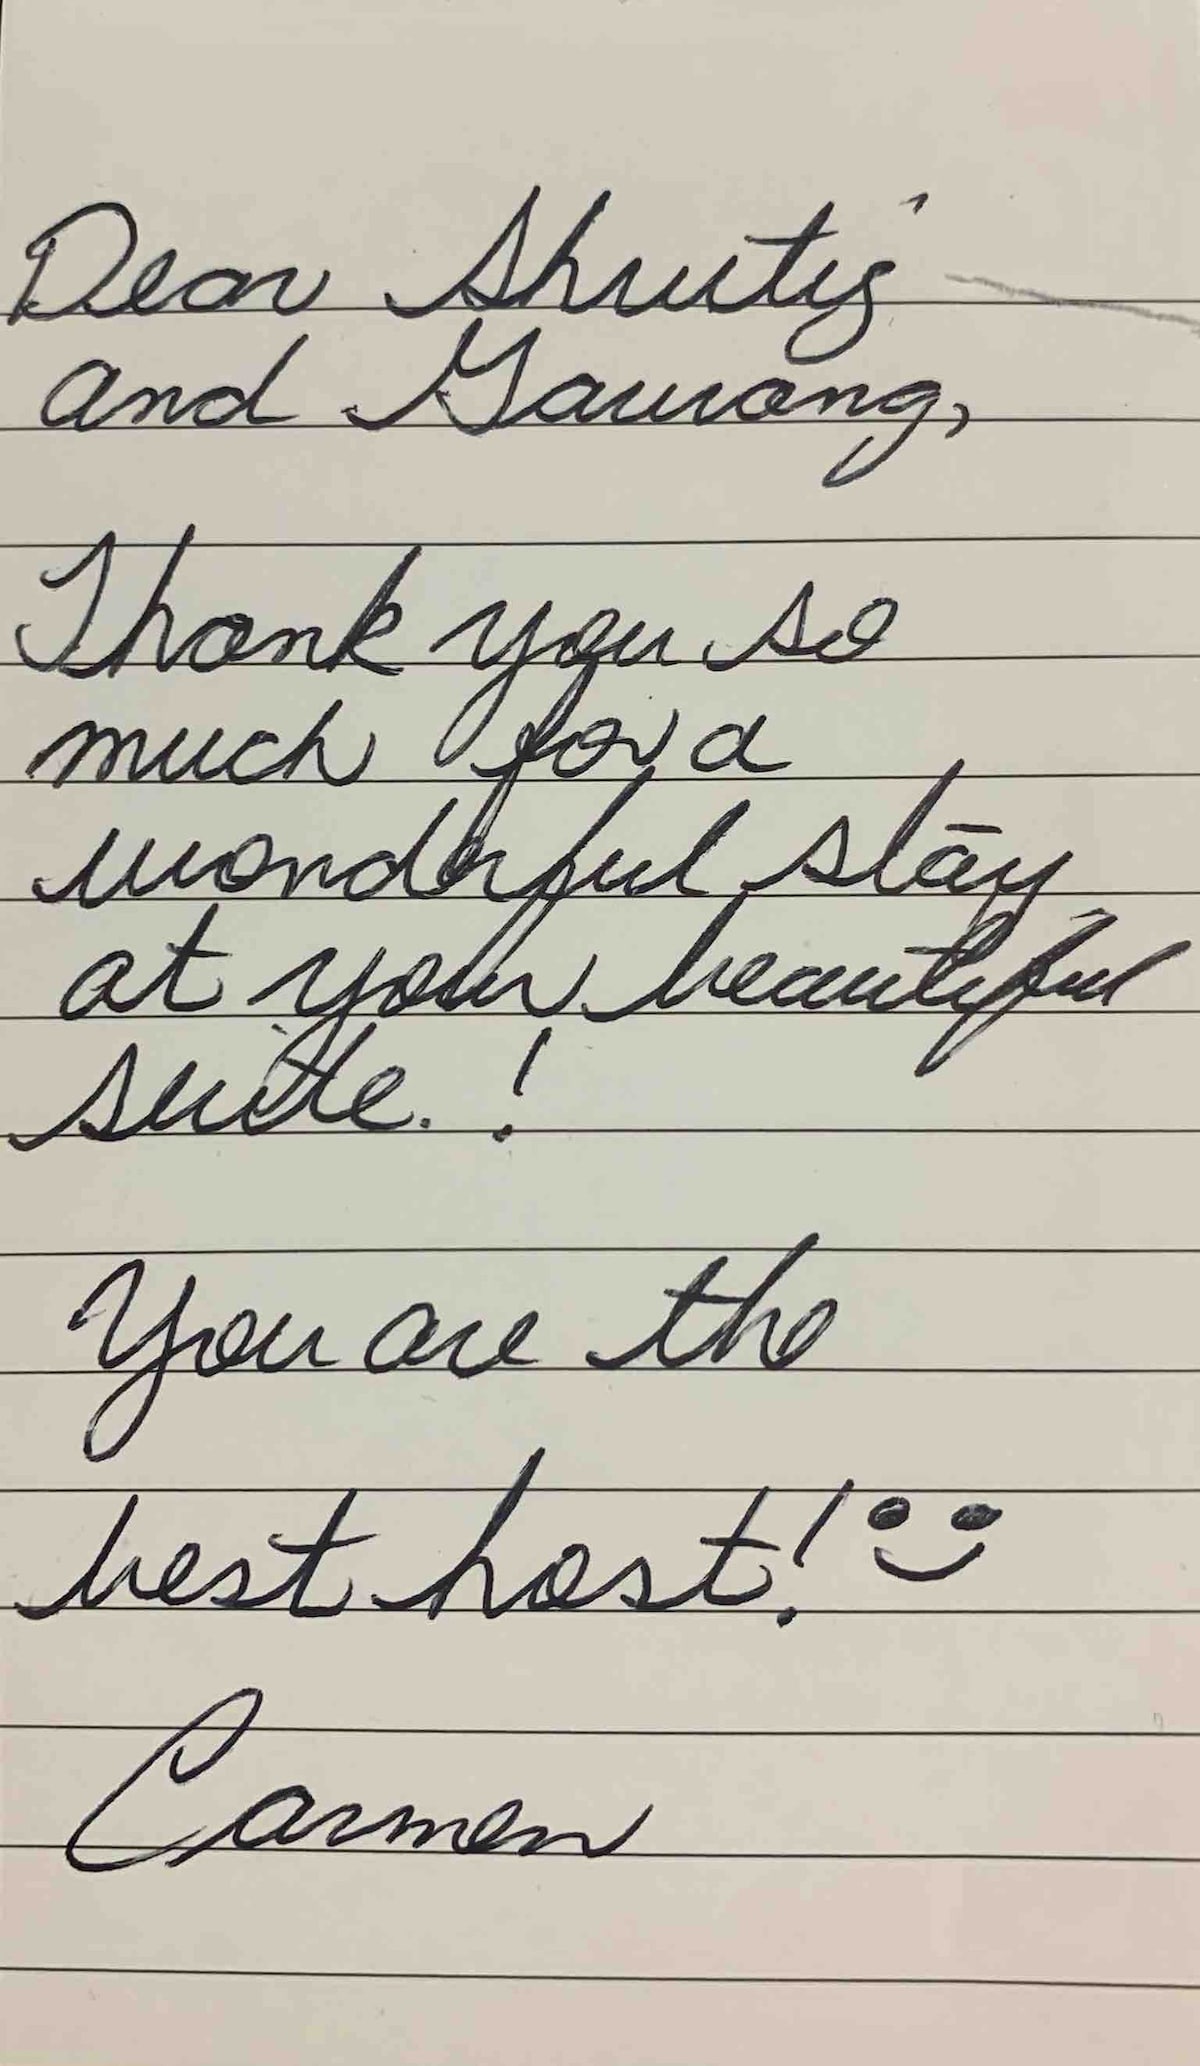 Dear Shrutij
and Gaurang,
Thank you so
much for a
wonderful stay
at your beautiful
suite.!
You are the
best host!
Carmen